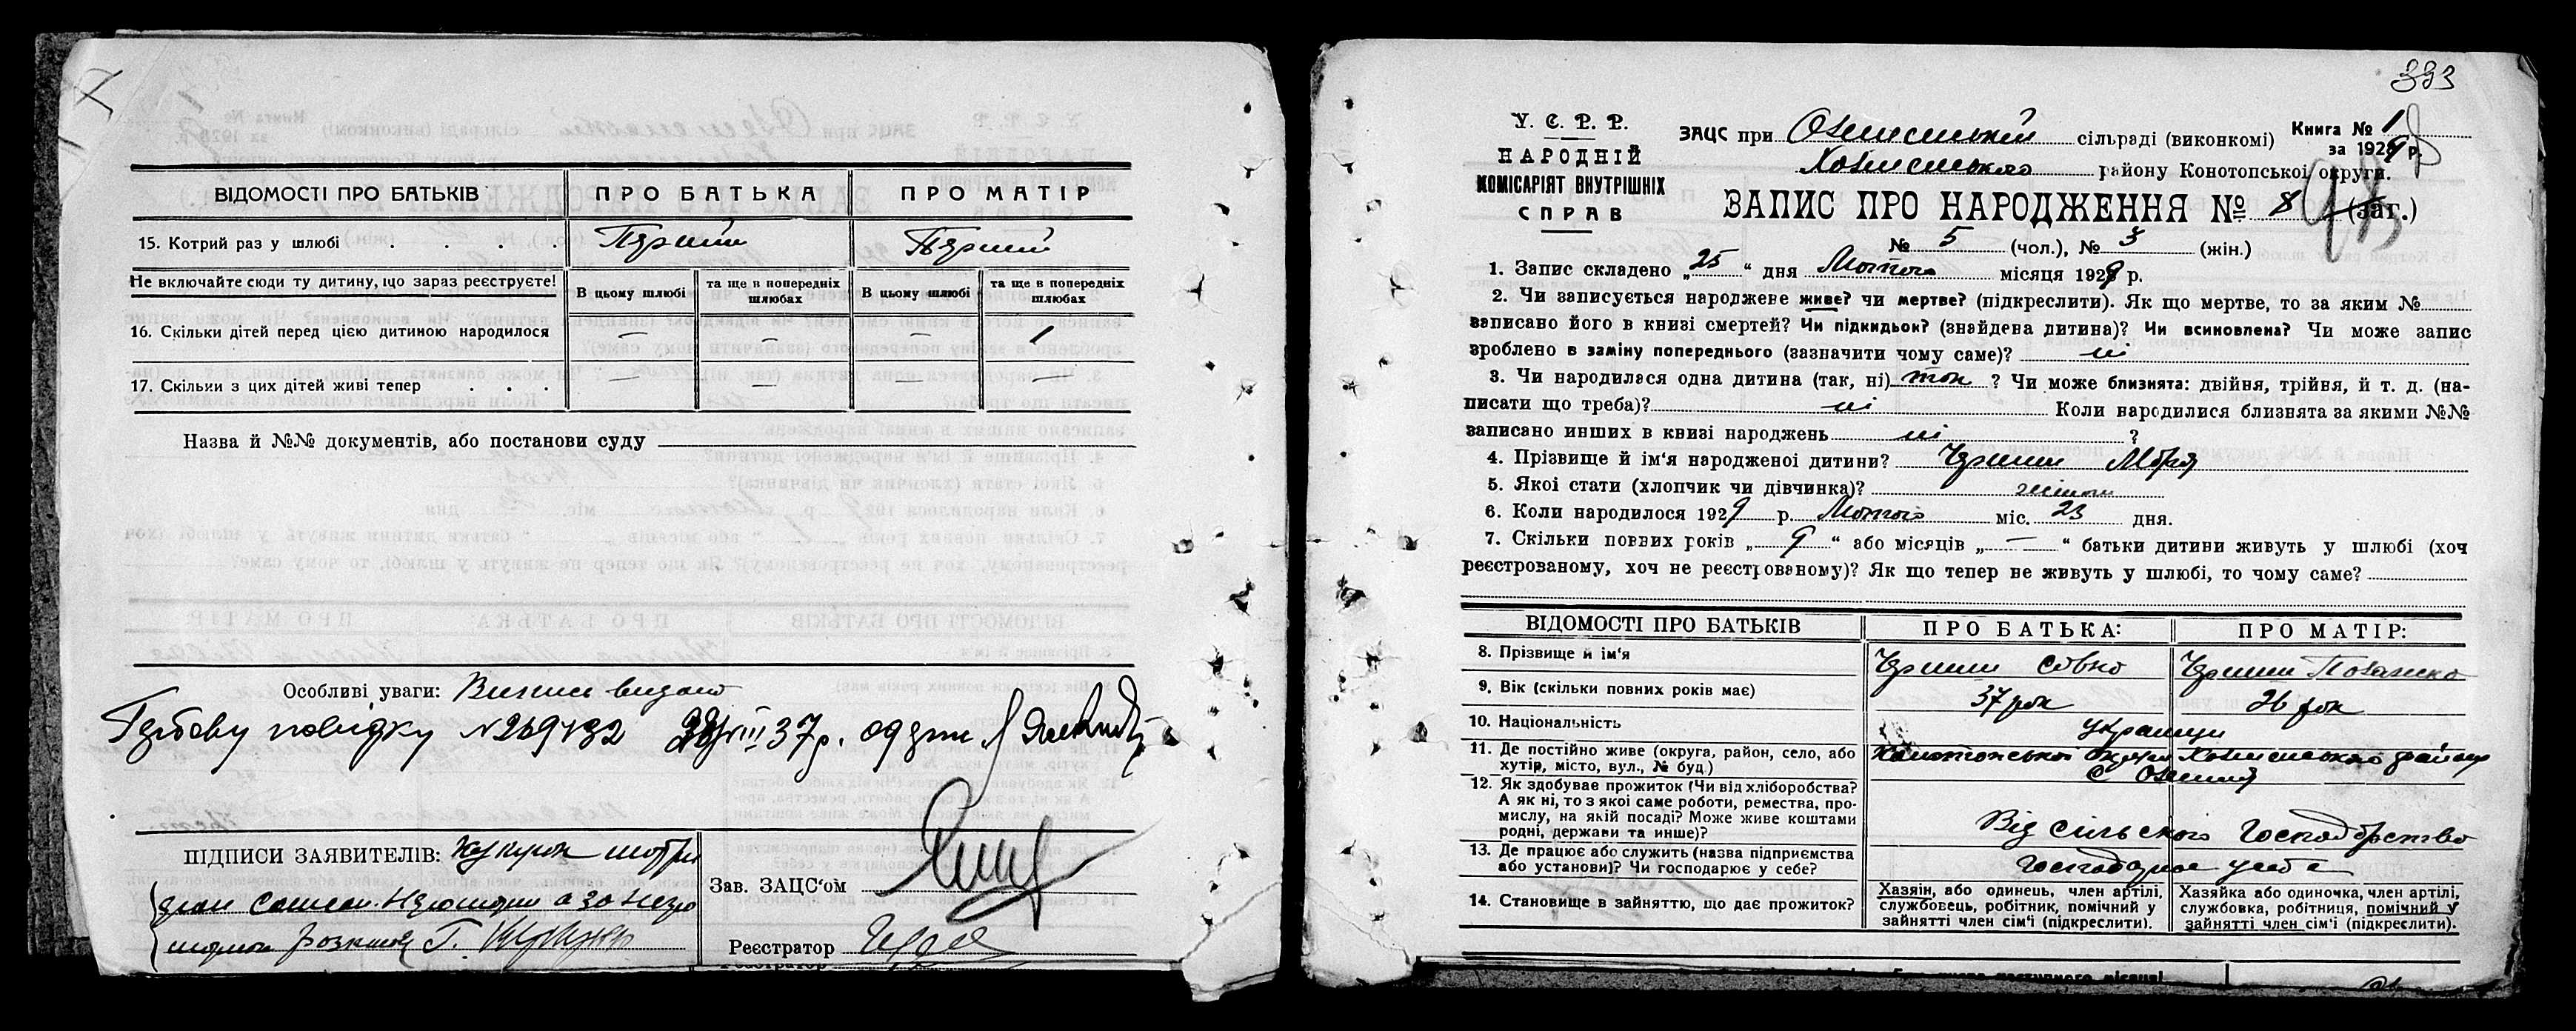 ВІДОМОСТІ ПРО БАТЬКІВ ПРО БАТЬКА ПРО МАТІР
15. Котрий раз у шлюбі . . . . Перший Перший
Не включайте сюди ту дитину, що зараз реєструєте! В цьому шлюбі та ще в попередніх шлюбах В цьому шлюбі та ще в попередніх шлюбах
16. Скільки дітей перед цією дитиною народилося — — 1
17. Скільки з цих дітей живі тепер . . . — — — —
Назва й №№ документів, або постанови суду
Особливі уваги: Випись видано
повідку N 269432 VIII 37р.
ПІДПИСИ ЗАЯВИТЕЛІВ:
Зав. ЗАЦС'ом
Реєстратор
393
У. С. Р. Р.
НАРОДНІЙ
КОМІСАРІЯТ ВНУТРІШНІХ
СПРАВ
ЗАЦС при сільраді (виконкомі) Книга № 1
за 1929 р.
району Конотопської округи.
ЗАПИС ПРО НАРОДЖЕННЯ № 8 (заг.)
№ 5 (чол.), № 3 (жін.)
1. Запис складено „25" дня Лютого місяця 1929 р.
2. Чи записується народжене живе? чи мертве? (підкреслити). Як що мертве, то за яким №
записано його в книзі смертей? Чи підкидьок? (знайдена дитина)? Чи всиновлена? Чи може запис
зроблено в заміну попереднього (зазначити чому саме)? ні
3. Чи народилася одна дитина (так, ні) так ? Чи може близнята: двійня, трійня, й т. д. (на-
писати що треба)? ні Коли народилися близнята за якими №№
записано инших в книзі народжень ні ?
4. Прізвище й ім'я народженої дитини? Марія
5. Якої стати (хлопчик чи дівчинка)?
6. Коли народилося 1929 р. Лютого міс. 23 дня.
7. Скільки повних років „9" або місяців „—" батьки дитини живуть у шлюбі (хоч
реєстрованому, хоч не реєстрованому)? Як що тепер не живуть у шлюбі, то чому саме?
ВІДОМОСТІ ПРО БАТЬКІВ ПРО БАТЬКА: ПРО МАТІР:
8. Прізвище й ім'я
9. Вік (скільки повних років має) 37 рок 26 рок
10. Національність Українці
11. Де постійно живе (округа, район, село, або
хутір, місто, вул., № буд.) Конотопської округи району
12. Як здобуває прожиток (Чи від хліборобства?
А як ні, то з якої саме роботи, ремества, про-
мислу, на якій посаді? Може живе коштами
родні, держави та инше)? Від сільського Господарства
13. Де працює або служить (назва підприємства
або установи)? Чи господарює у себе? Господарює у себе
14. Становище в зайняттю, що дає прожиток?
Хазяїн, або одинець, член артілі,
службовець, робітник, помічний у
зайнятті член сім'ї (підкреслити).
Хазяйка або одиночка, член артілі,
службовка, робітниця, помічний у
зайнятті член сім'ї (підкреслити).